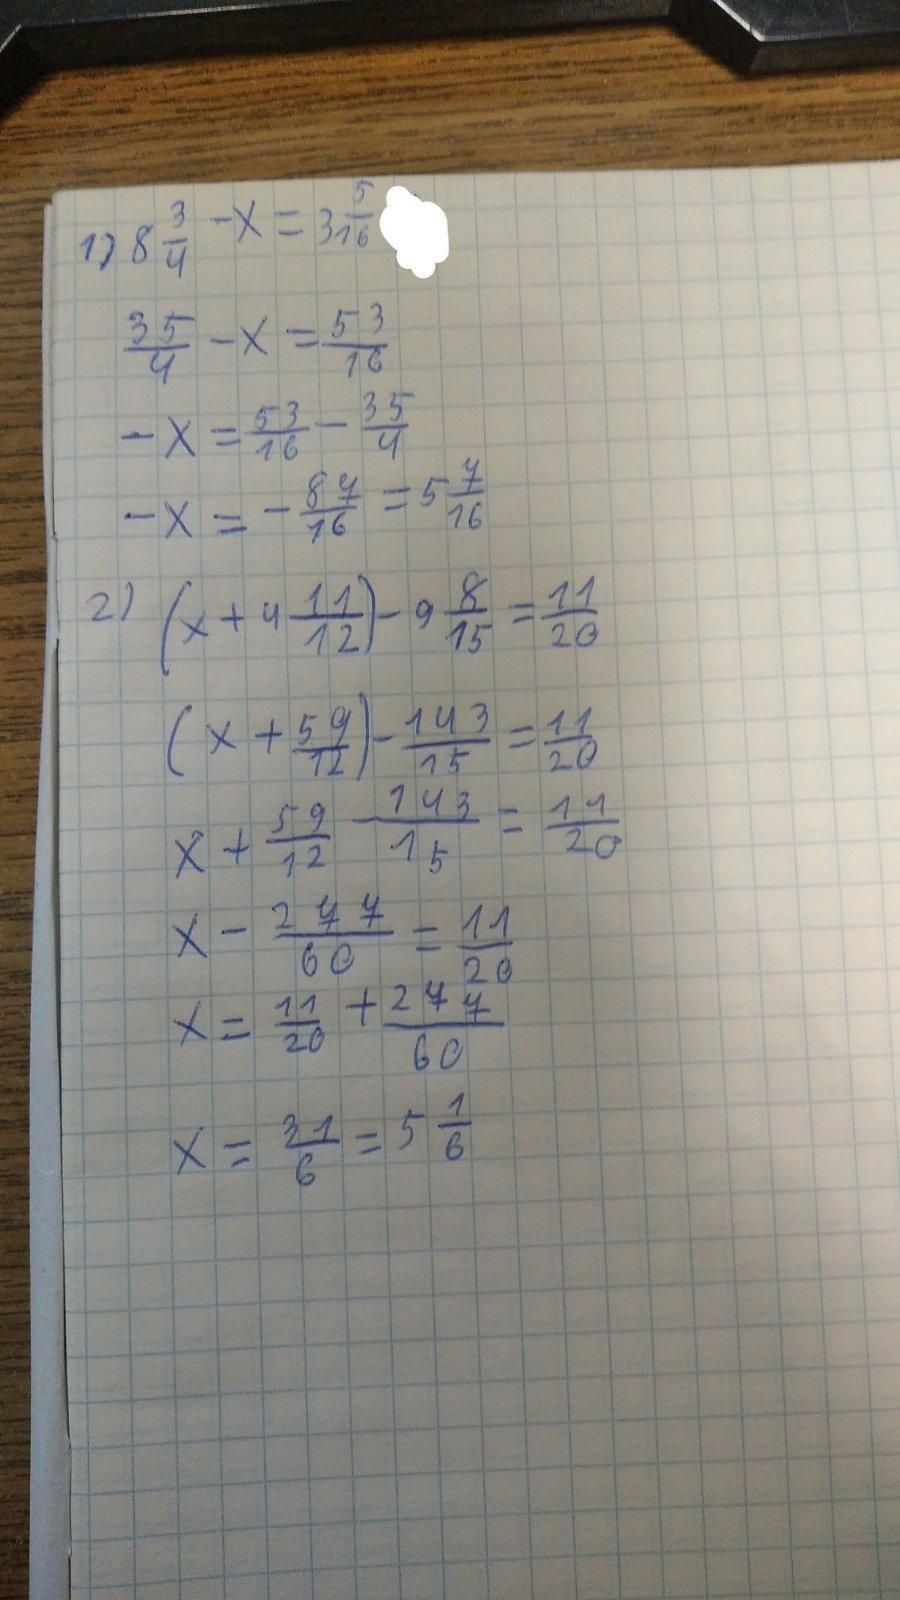 1) 8 3/4 - x = 3 5/16
35/4 - x = 53/16
- x = 53/16 - 35/4
- x = - 87/16 = 5 7/16
2) (x + 4 11/12) - 9 8/15 = 11/20
(x + 59/12) - 143/15 = 11/20
x + 59/12 - 143/15 = 11/20
x - 277/60 = 11/20
x = 11/20 + 277/60
x = 31/6 = 5 1/6